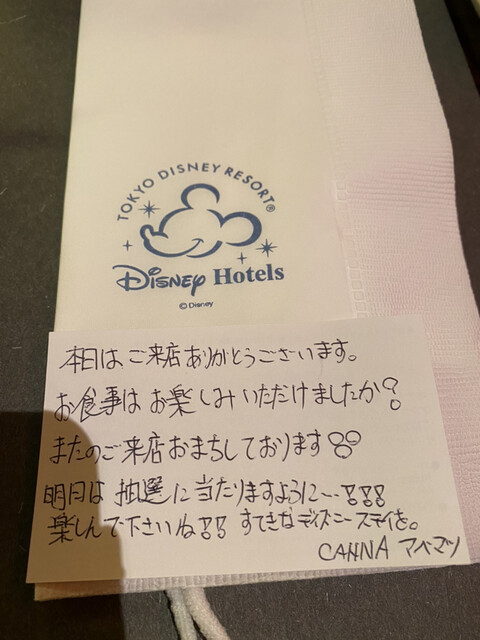 TOKYO DISNEY RESORT®
Disney Hotels
© Disney
本日は ご来店ありがとうございます。
お食事は お楽しみいただけましたか?
またのご来店おまちしております
明日は 抽選に当たりますように〜!!!
楽しんで下さいね!! すてきなディズニーステイを。
CANNA アベマツ